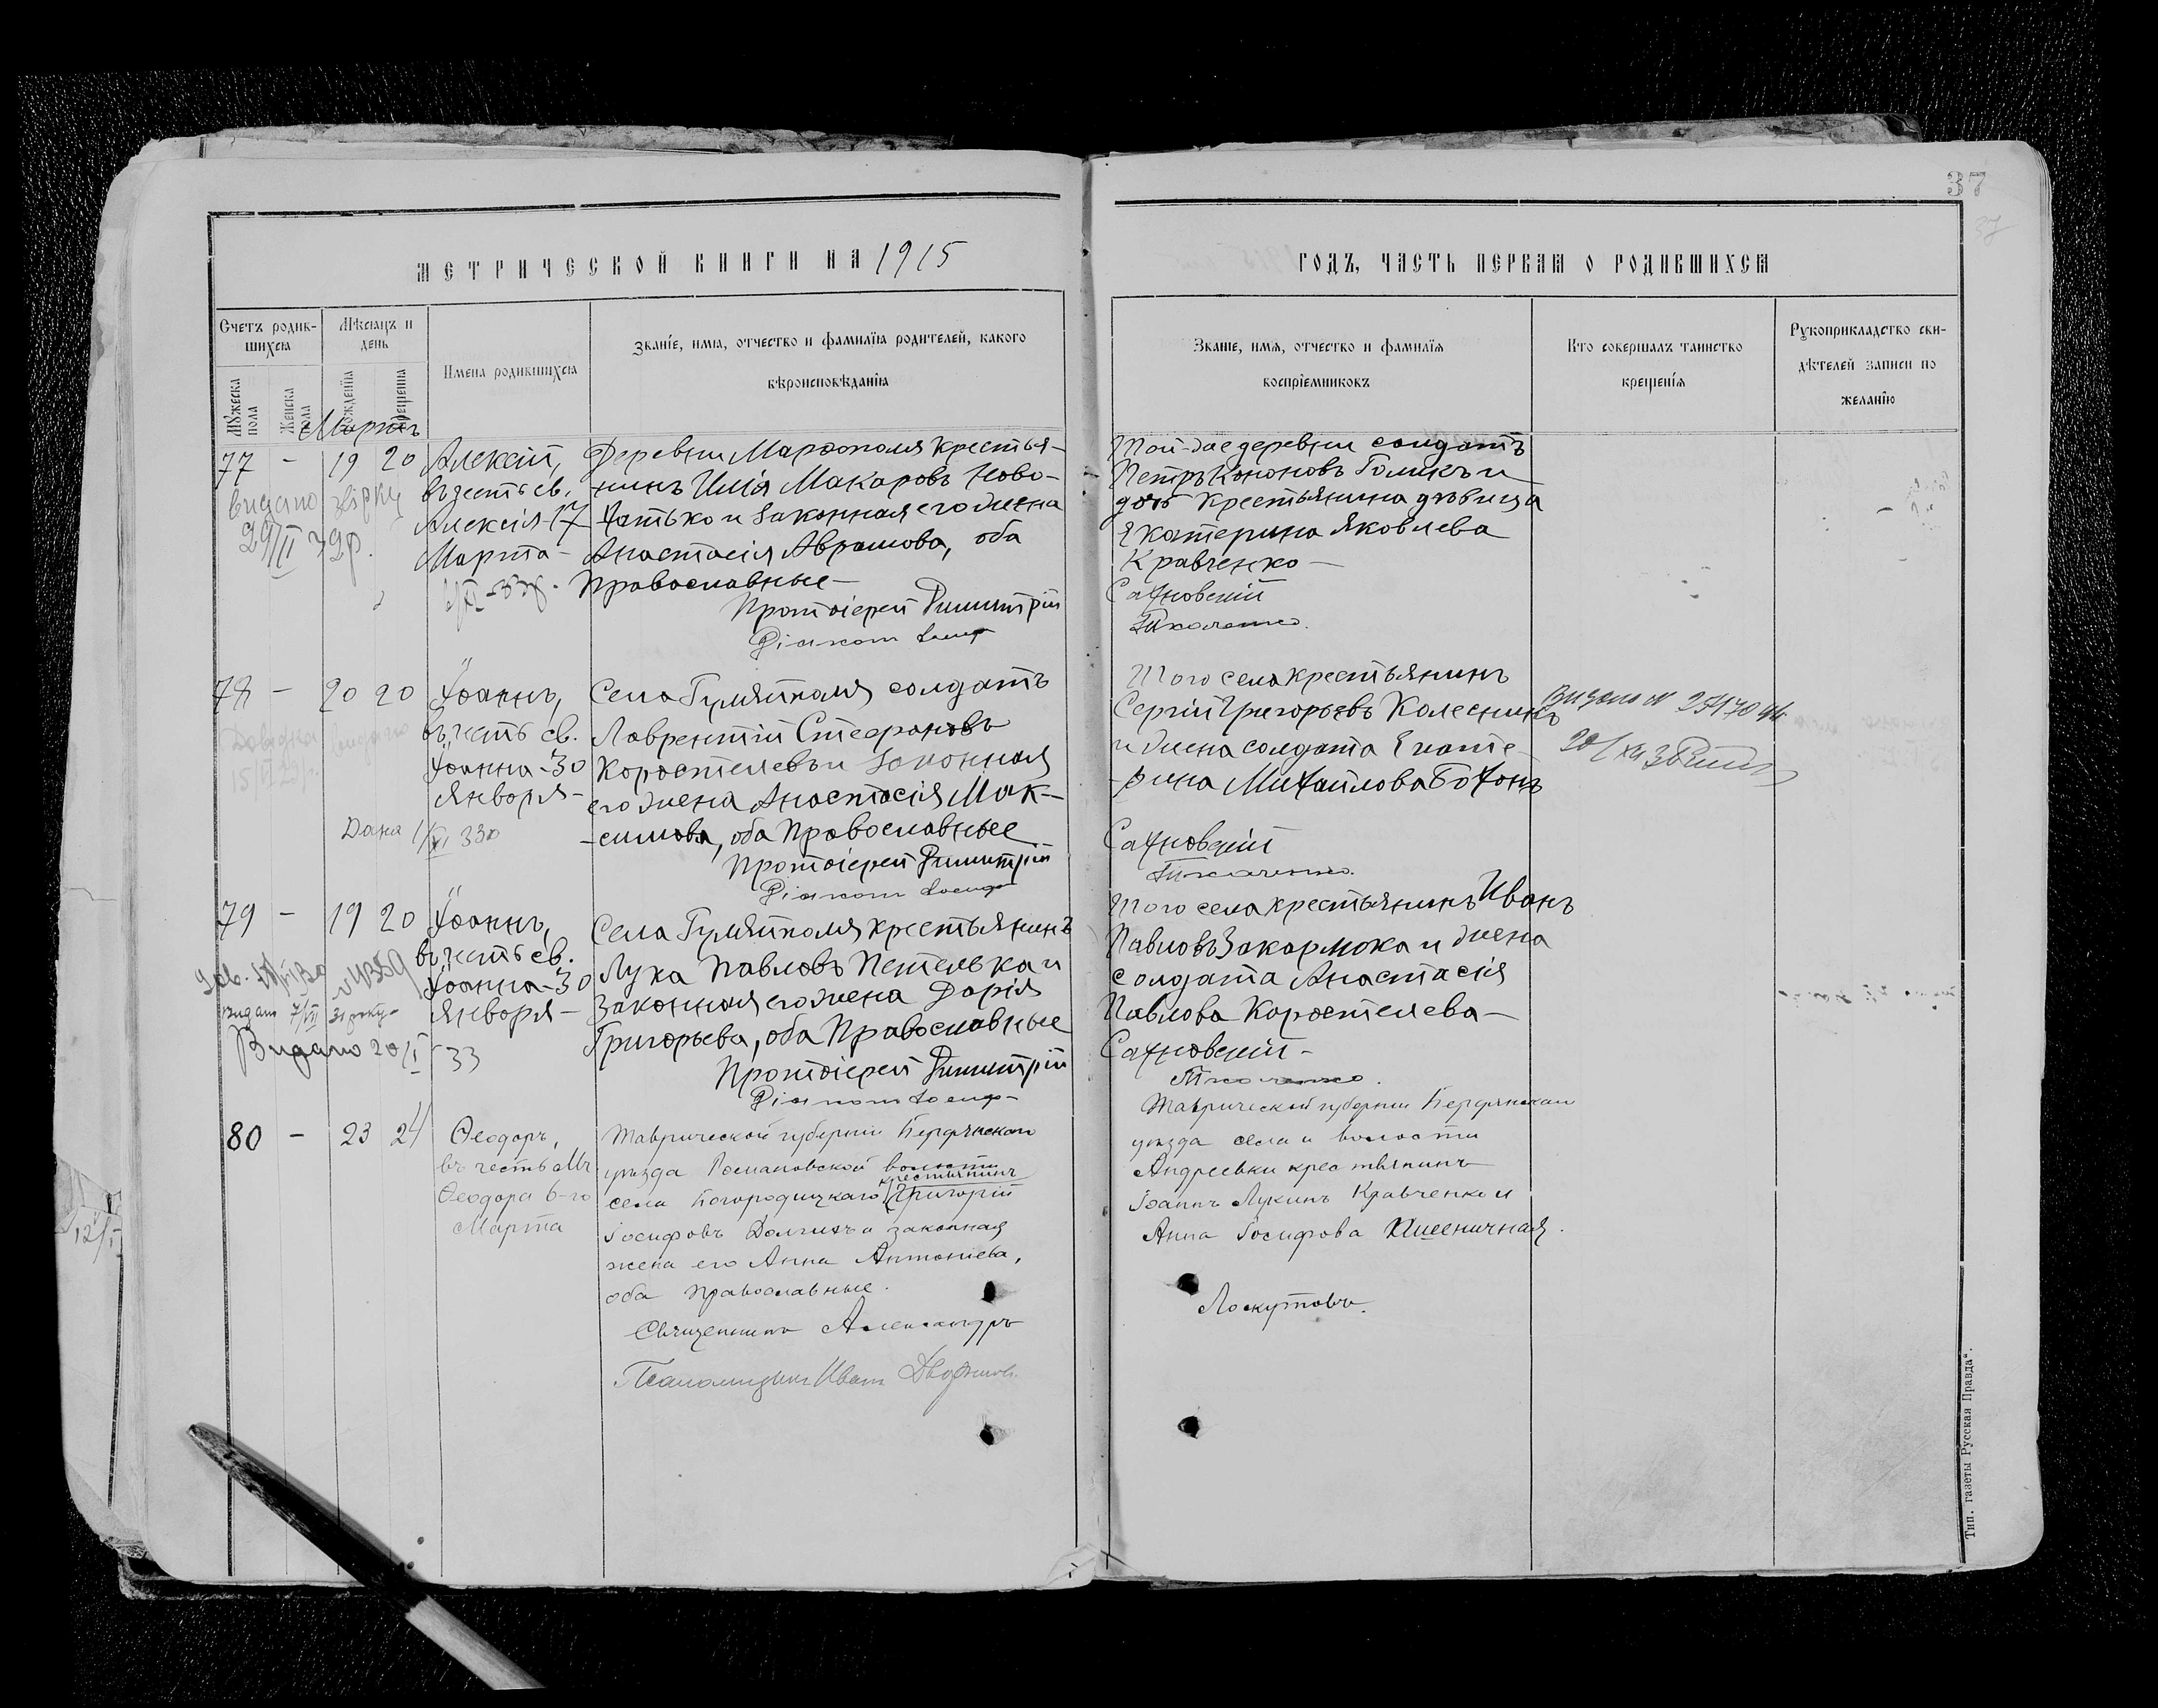 37
37
МЕТРИЧЕСКОЙ КНИГИ НА 1915
ГОДЪ, ЧАСТЬ ПЕРВАЯ О РОДИВШИХСЯ
Счетъ родив-
шихся
Мѣсяцъ и
день
Мужеска
пола
Женска
пола
рожденія
крещенія
Имена родившихся
Званіе, имя, отчество и фамилія родителей, какого
вѣроисповѣданія
Званіе, имя, отчество и фамилія
воспріемниковъ
Кто совершалъ таинство
крещенія
Рукоприкладство сви-
дѣтелей записи по
желанію
Мартъ
77 - 19 20
Алексій,
въ честь св.
Алексія 17
Марта-
видано
29/II 32р.
Деревни Мархополя крестья-
нинъ Илія Макаровъ Ново-
хатько и законная его жена
Анастасія Аврамова, оба
Православные-
Протоіерей Димитрій
Діаконъ
Той-же деревни солдатъ
Петръ Кононовъ Голикъ и
дочь крестьянина дѣвица
Екатерина Яковлева
Кравченко-
Сахновскій
Ткаченко.
78 - 20 20
Іоаннъ,
въ честь св.
Іоанна-30
Января-
Дана 1/XI 33о
Села Гуляйполя солдатъ
Лаврентій Стефановъ
Коростелевъ и законная
его жена Анастасія Мак-
симова, оба Православные
Протоіерей Димитрій
Діаконъ
Того села крестьянинъ
Сергій Григорьевъ Колесникъ
и жена солдата Екате-
-рина Михаилова Бохонъ
Сахновскій
Ткаченко.
Видано
79 - 19 20
Іоаннъ,
въ честь св.
Іоанна-30
Января-
Видано 20/I 33
Села Гуляйполя крестьянинъ
Лука Павловъ Петелька и
законная его жена Дарія
Григорьева, оба Православные
Протоіерей Димитрій
Діаконъ
Того села крестьянинъ Иванъ
Павловъ Закарлюка и жена
солдата Анастасія
Павлова Коростелева-
Сахновскій-
Ткаченко.
80 - 23 24
Ѳеодоръ,
въ честь Мч.
Ѳеодора 6-го
Марта
Таврической губерніи Бердянскаго
уѣзда Романовской волости
села Богородицкаго крестьянинъ Григорій
Іосифовъ Долгихъ и законная
жена его Анна Антоніева,
оба православные.
Священникъ Александръ
Псаломщикъ Иванъ
Таврической губерніи Бердянскаго
уѣзда села и волости
Андреевки крестьянинъ
Іоаннъ Лукинъ Кравченко и
Анна Іосифова Пшеничная.
Лоскутовъ.
12/I
Тип. газеты Русская Правда".